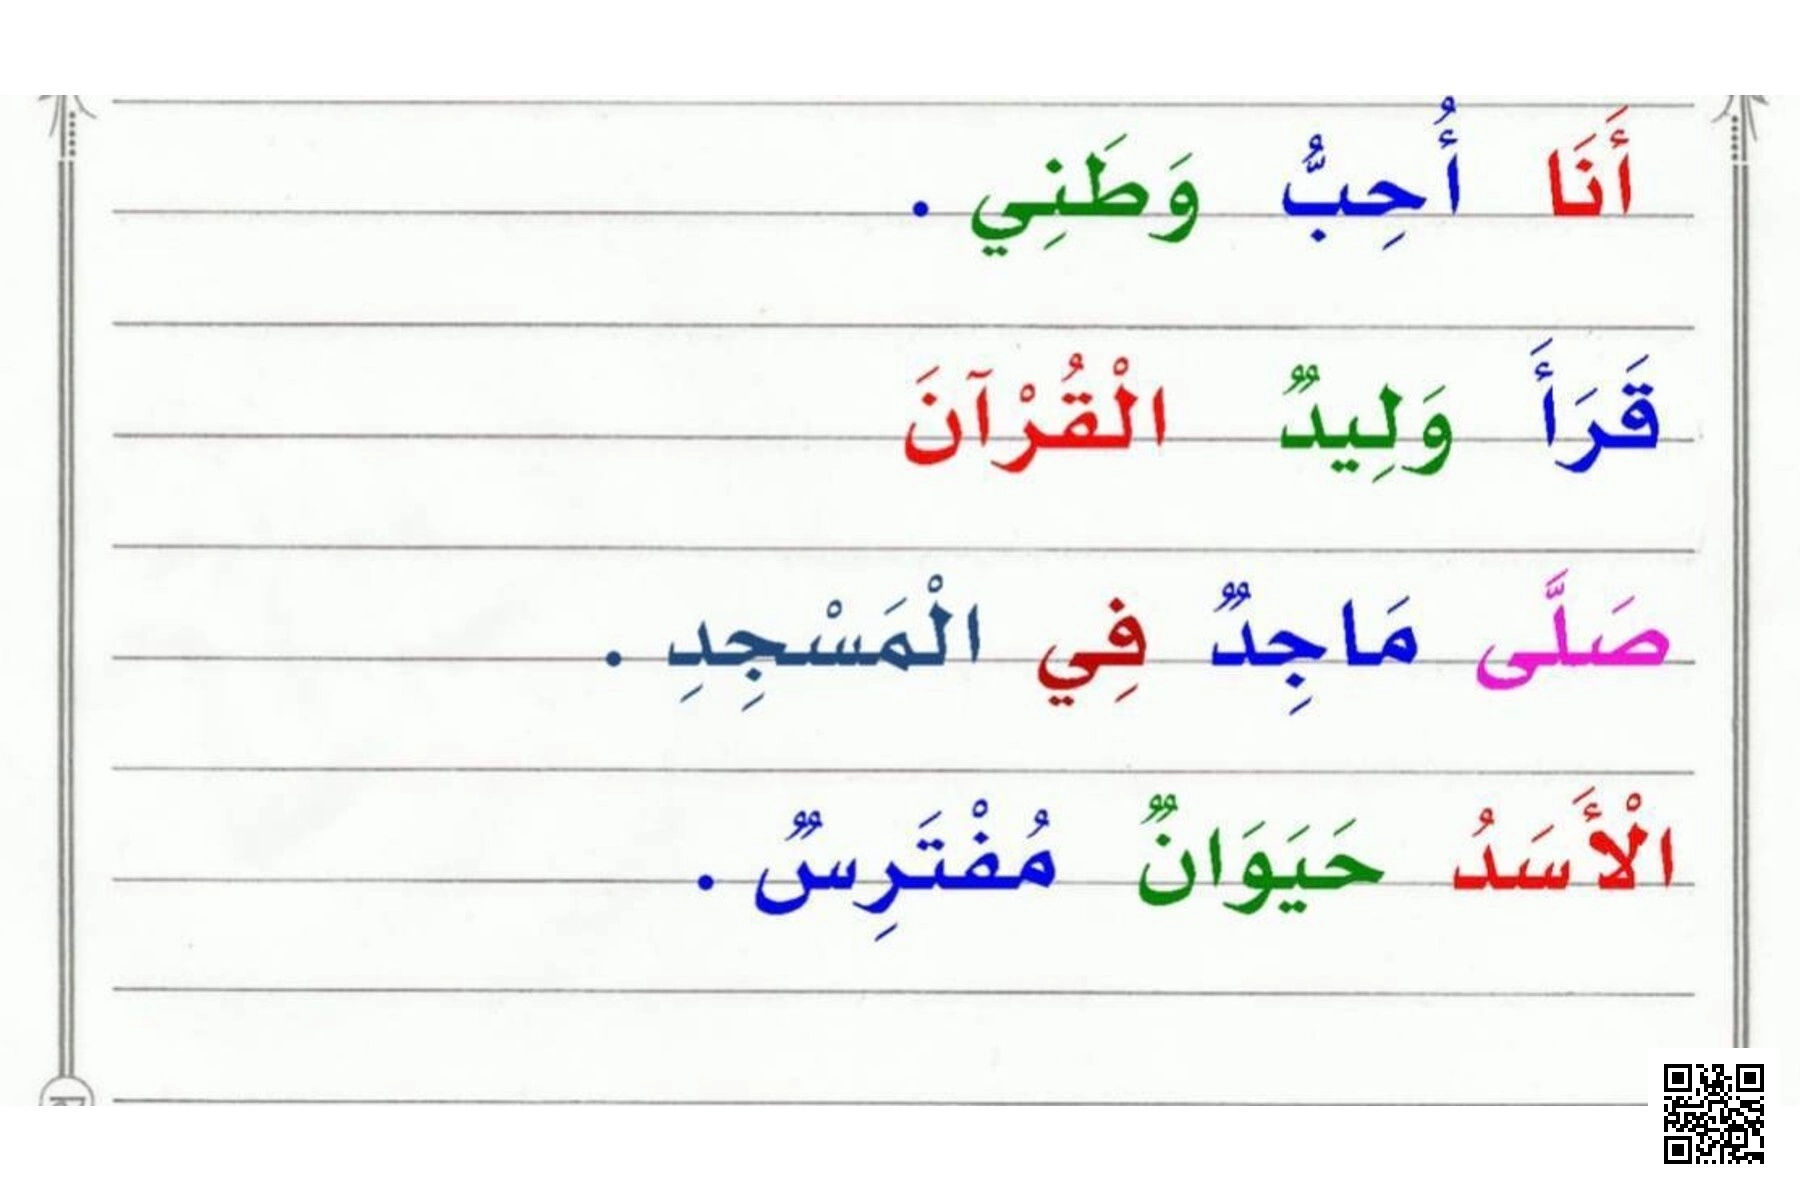 أَنَا أُحِبُّ وَطَنِي .
قَرَأَ وَلِيدٌ الْقُرْآنَ
صَلَّى مَاجِدٌ فِي الْمَسْجِدِ .
الْأَسَدُ حَيَوَانٌ مُفْتَرِسٌ .